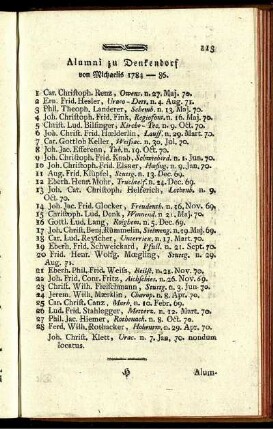 113
Alumni zu Denkendorf
von Michaelis 1784 — 86.
1 Car. Christoph. Renz, Owens. n. 27. Maj. 70.
2 Ern. Frid. Hesler, n. 4. Aug. 71.
3 Phil. Theoph. Landerer, n. 13. Maj. 70.
4 Joh. Christoph. Frid. Fink, n. 16. Maj. 70.
5 Christ. Lud. Bilfinger, n. 9. Oct. 70.
6 Joh. Christ. Frid. Hælderlin, Lauff. n. 29. Mart. 70.
7 Car. Gottlob Keller, n. 30. Jul. 70.
8 Joh. Jac. Efferenn, Tub. n. 19. Oct. 70.
9 Joh. Christoph. Frid. Knab, n. 1. Jun. 70.
10 Joh. Christoph. Frid. n. 9. Jun. 70.
11 Aug. Frid. Klüpfel, Stuttg. n. 13. Dec. 69.
12 Eberh. Henr. Mohr, n. 24. Dec. 69.
13 Joh. Car. Christoph. Helferich, n. 9. Oct. 70.
14 Joh. Jac. Frid. Glocker, Freudenth. n. 16. Nov. 69.
15 Christoph. Lud. Denk, Winnend. n. 21. Maj. 70.
16 Gottl. Lud. Lang, n. 5. Dec. 69.
17 Joh. Christ. Benj. Rümmelin, n. 19. Maj. 69.
18 Car. Lud. Reytcher, n. 17. Mart. 70.
19 Eberh. Frid. Schweickard, n. 21. Sept. 70.
20 Frid. Henr. Wolfg. Mœgling, Stuttg. n. 29.
Aug. 71.
21 Eberh. Phil. Frid. Weiss, n. 21. Nov. 70.
22 Joh. Frid. Conr. Fritz, n. 26. Nov. 69.
23 Christ. Wilh. Fleischmann, Stuttg. n. 3. Jun. 70.
24 Jerem. Wilh. Mærklin, n. 8. Apr. 70.
25 Car. Christ. Canz, n. 10. Febr. 69.
26 Lud. Frid. Stahlegger, n. 12. Oct. 70.
27 Phil. Jac. Hiemer, n. 8. Oct. 70.
28 Ferd. Wilh. Rothacker, n. 29. Apr. 70.
Joh. Christ. Klett, Urac. n. 7. Jan. 70. nondum
locatus.
Alum-